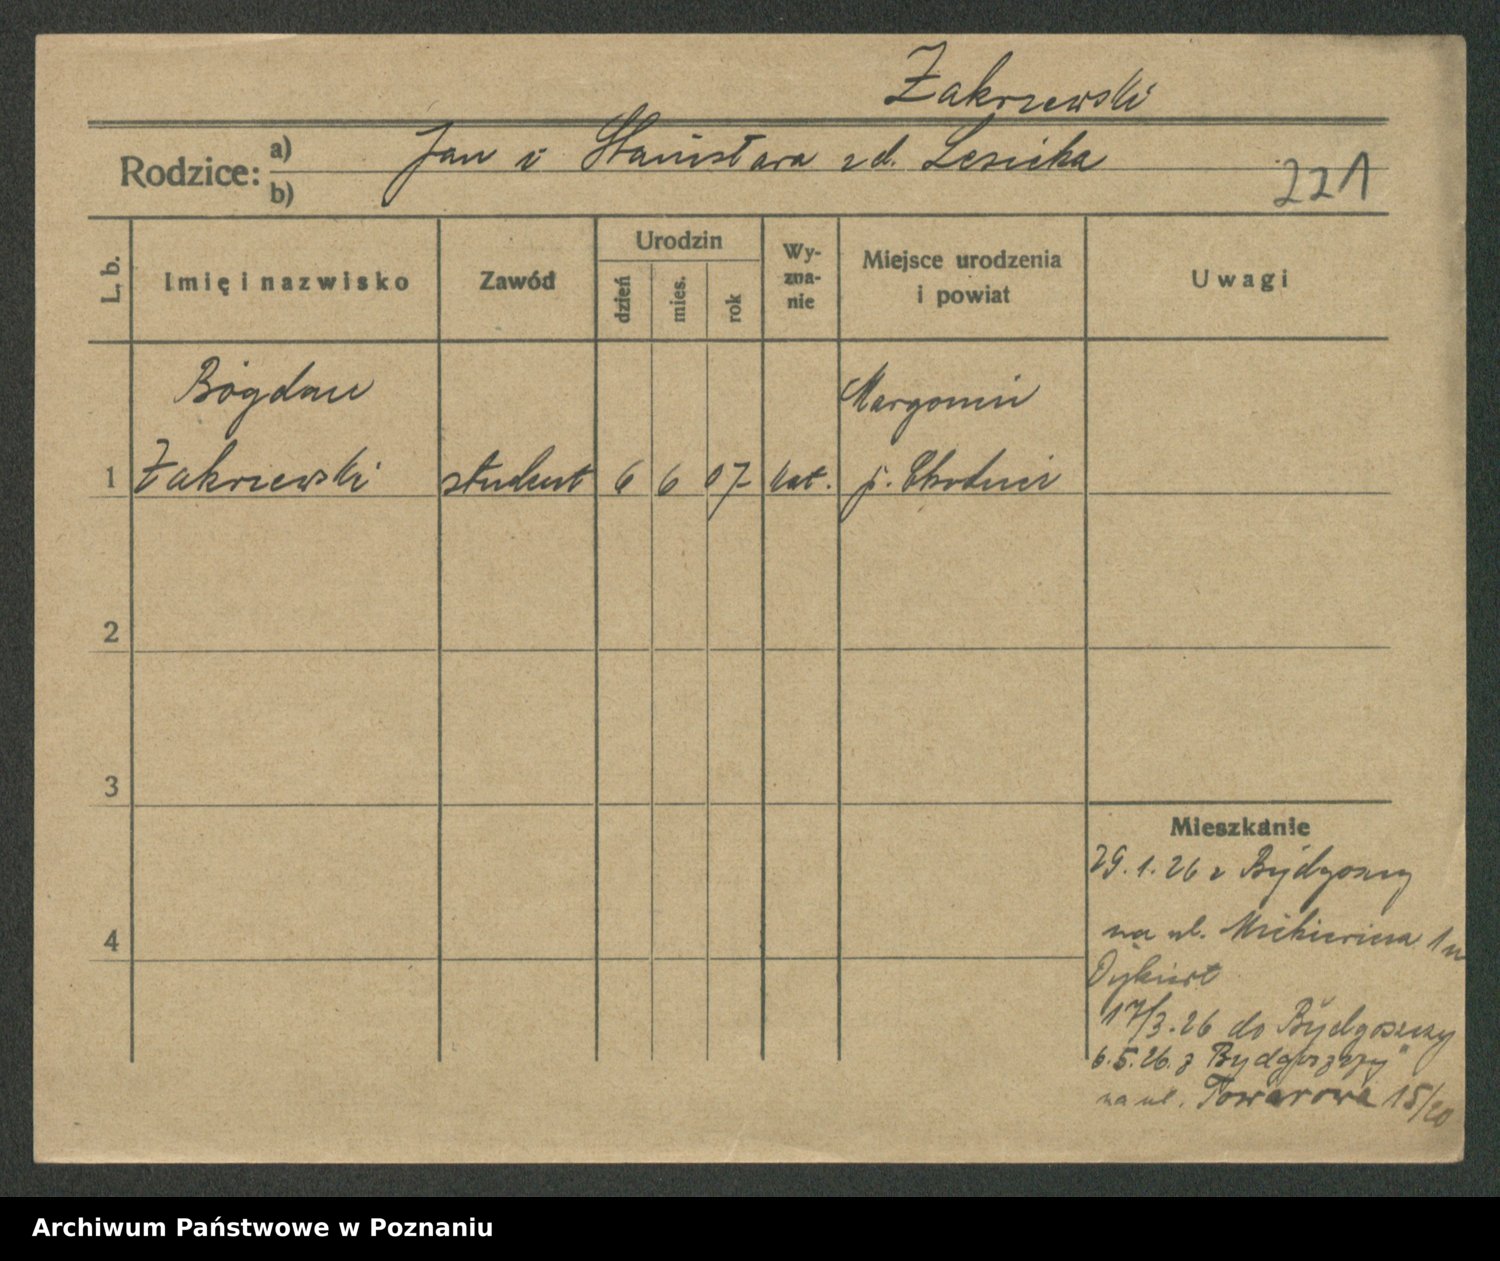 Zakrzewski
Rodzice: a) b) Jan i Stanisława zd. Lesicka
221
L. b. Imię i nazwisko Zawód Urodzin dzień mies. rok Wyznanie Miejsce urodzenia i powiat Uwagi
Bogdan Margonin
1 Zakrzewski student 6 6 07 kat. p. Chodzież
2
3
Mieszkanie
29.1.26 z Bydgoszczy
4
na ul. Mickiewicza 1 u
17/3.26 do Bydgoszczy
6.5.26. z Bydgoszczy
na ul. Towarowa 15/20
Archiwum Państwowe w Poznaniu